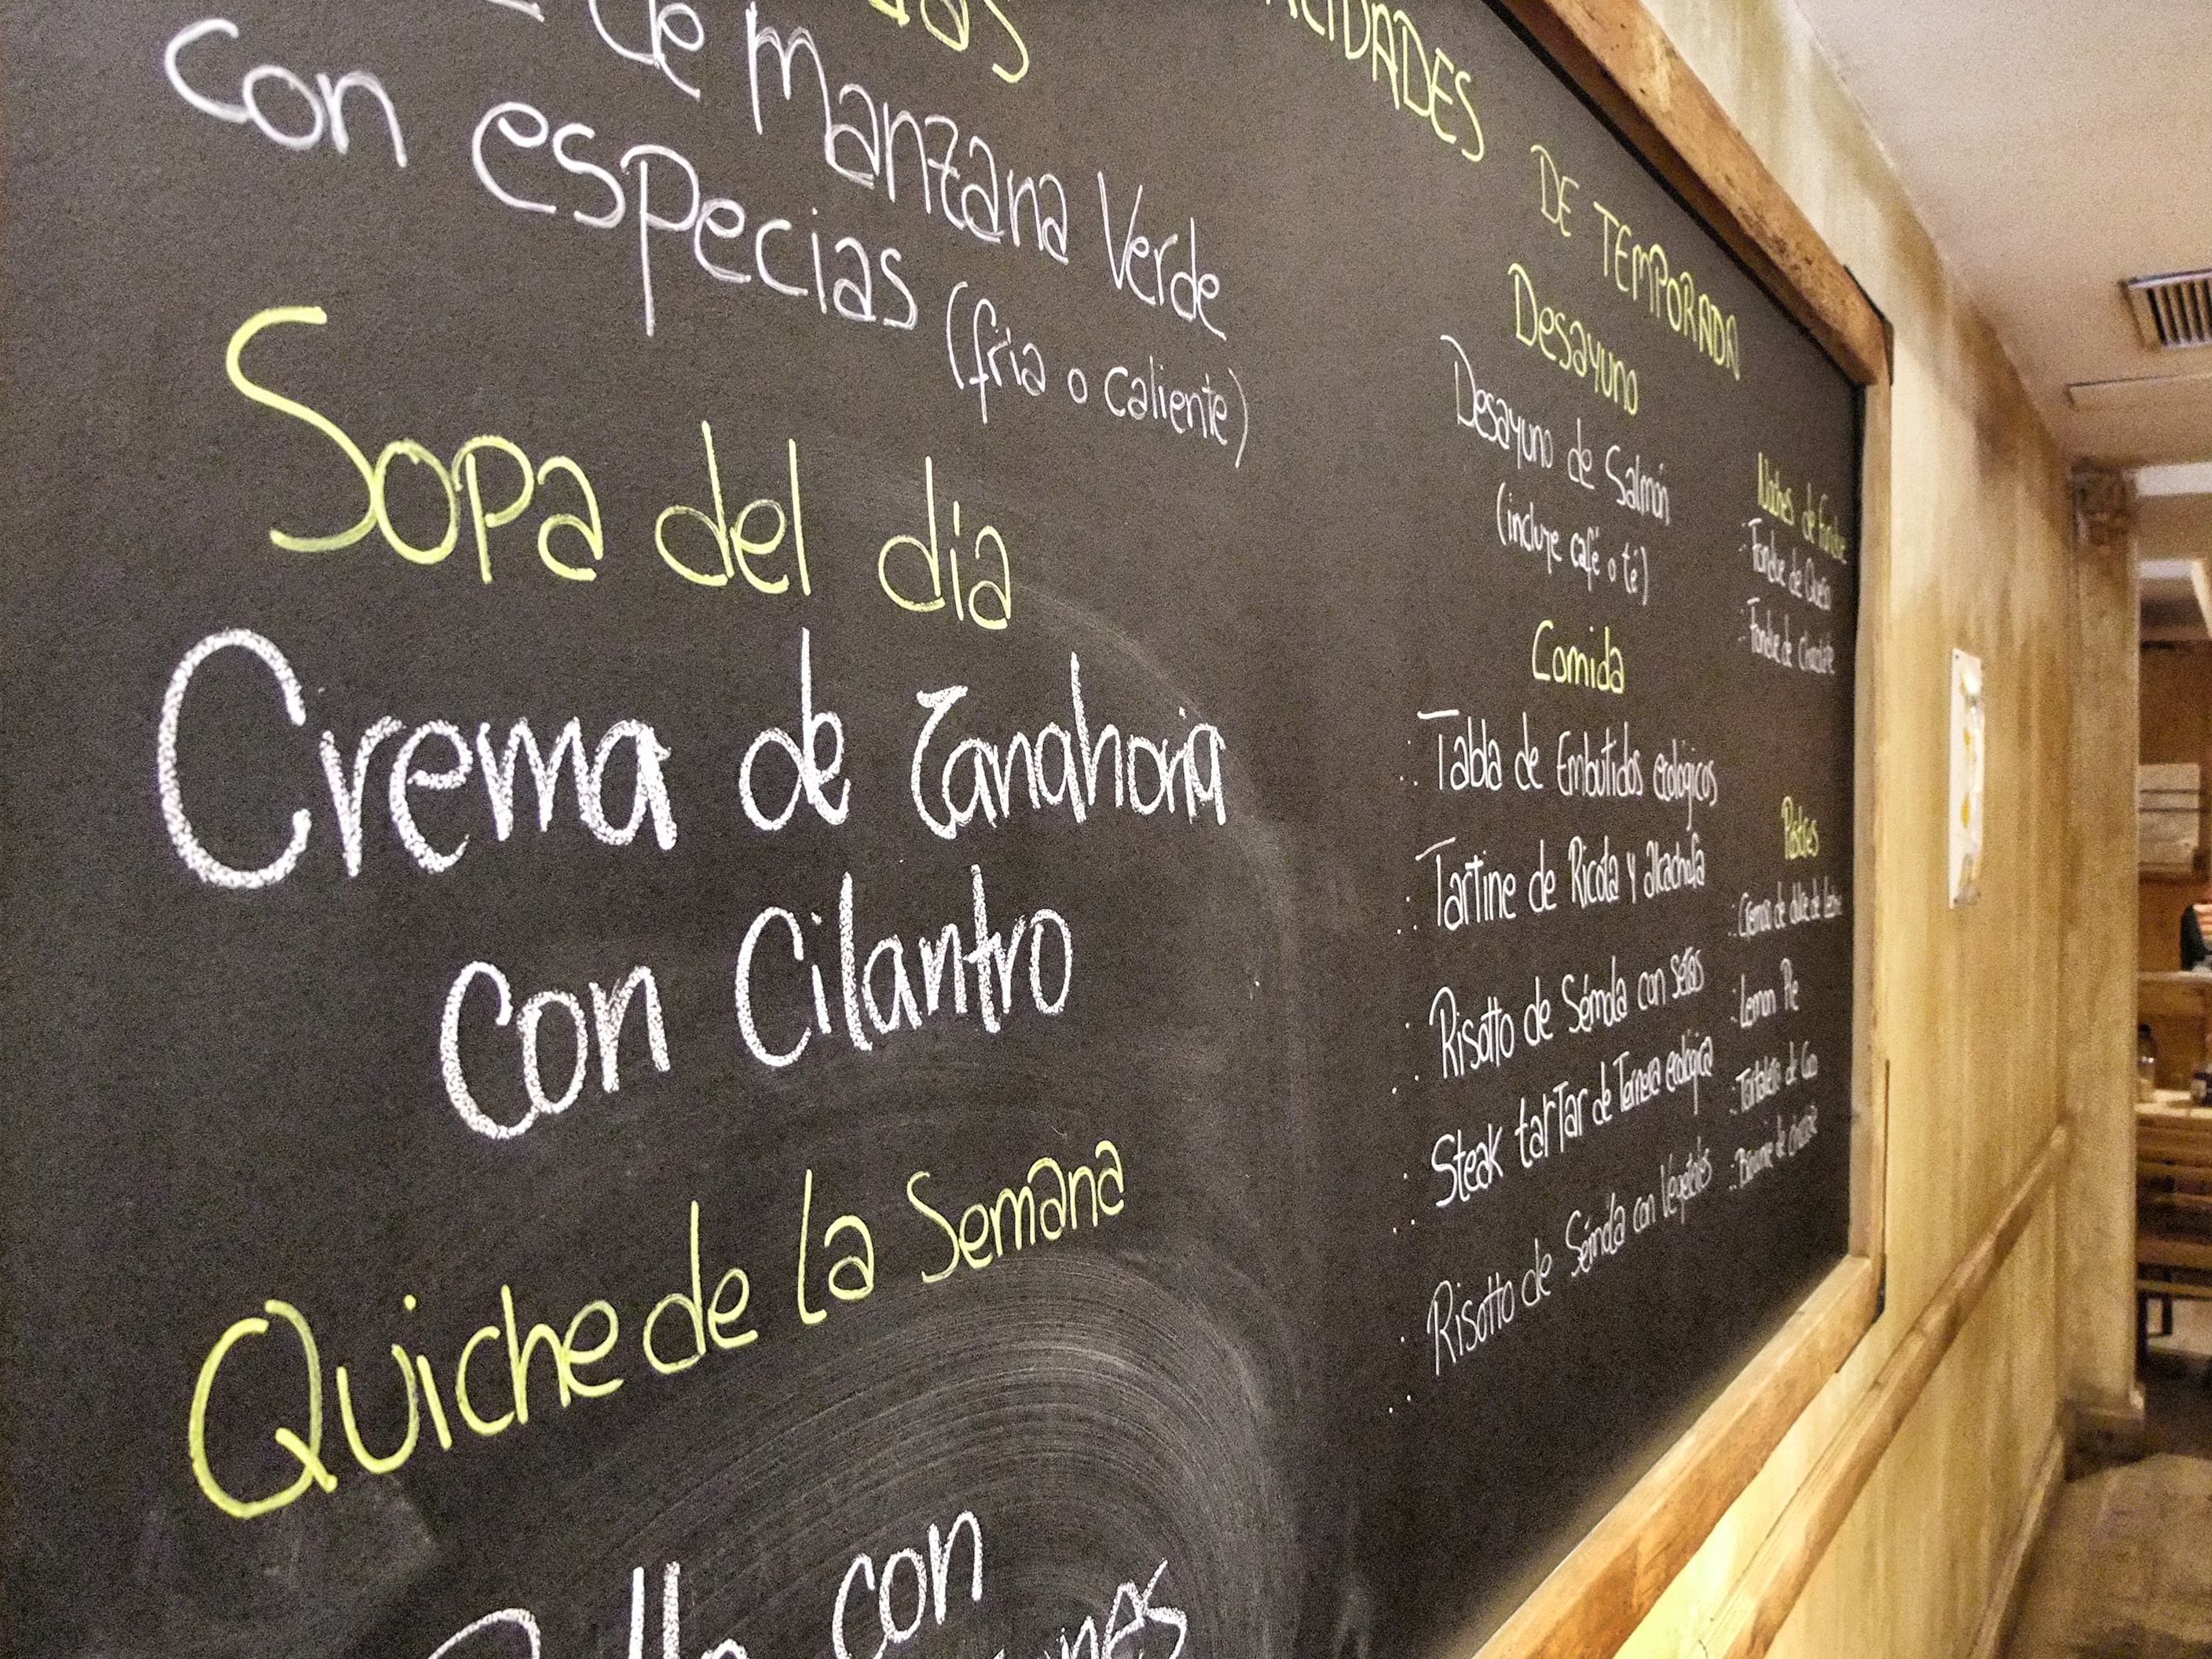 de Manzana Verde
con especias
(fria o caliente)
Sopa del dia
Crema de Zanahoria
con Cilantro
Quiche de la Semana
con
DE TEMPORADA
Desayuno
Desayuno de Salmón
(incluye café o té)
Comida
Tabla de Embutidos ecologicos
Tartine de Ricota y alcachofa
Risotto de Sémola con setas
Steak tartar de Ternera ecológica
Risotto de Sémola con Vegetales
Noches de Fondue
Fondue de Queso
Fondue de Chocolate
Postres
Cremoso de dulce de leche
Lemon Pie
Tartaleta de Coco
Brownie de chocolate